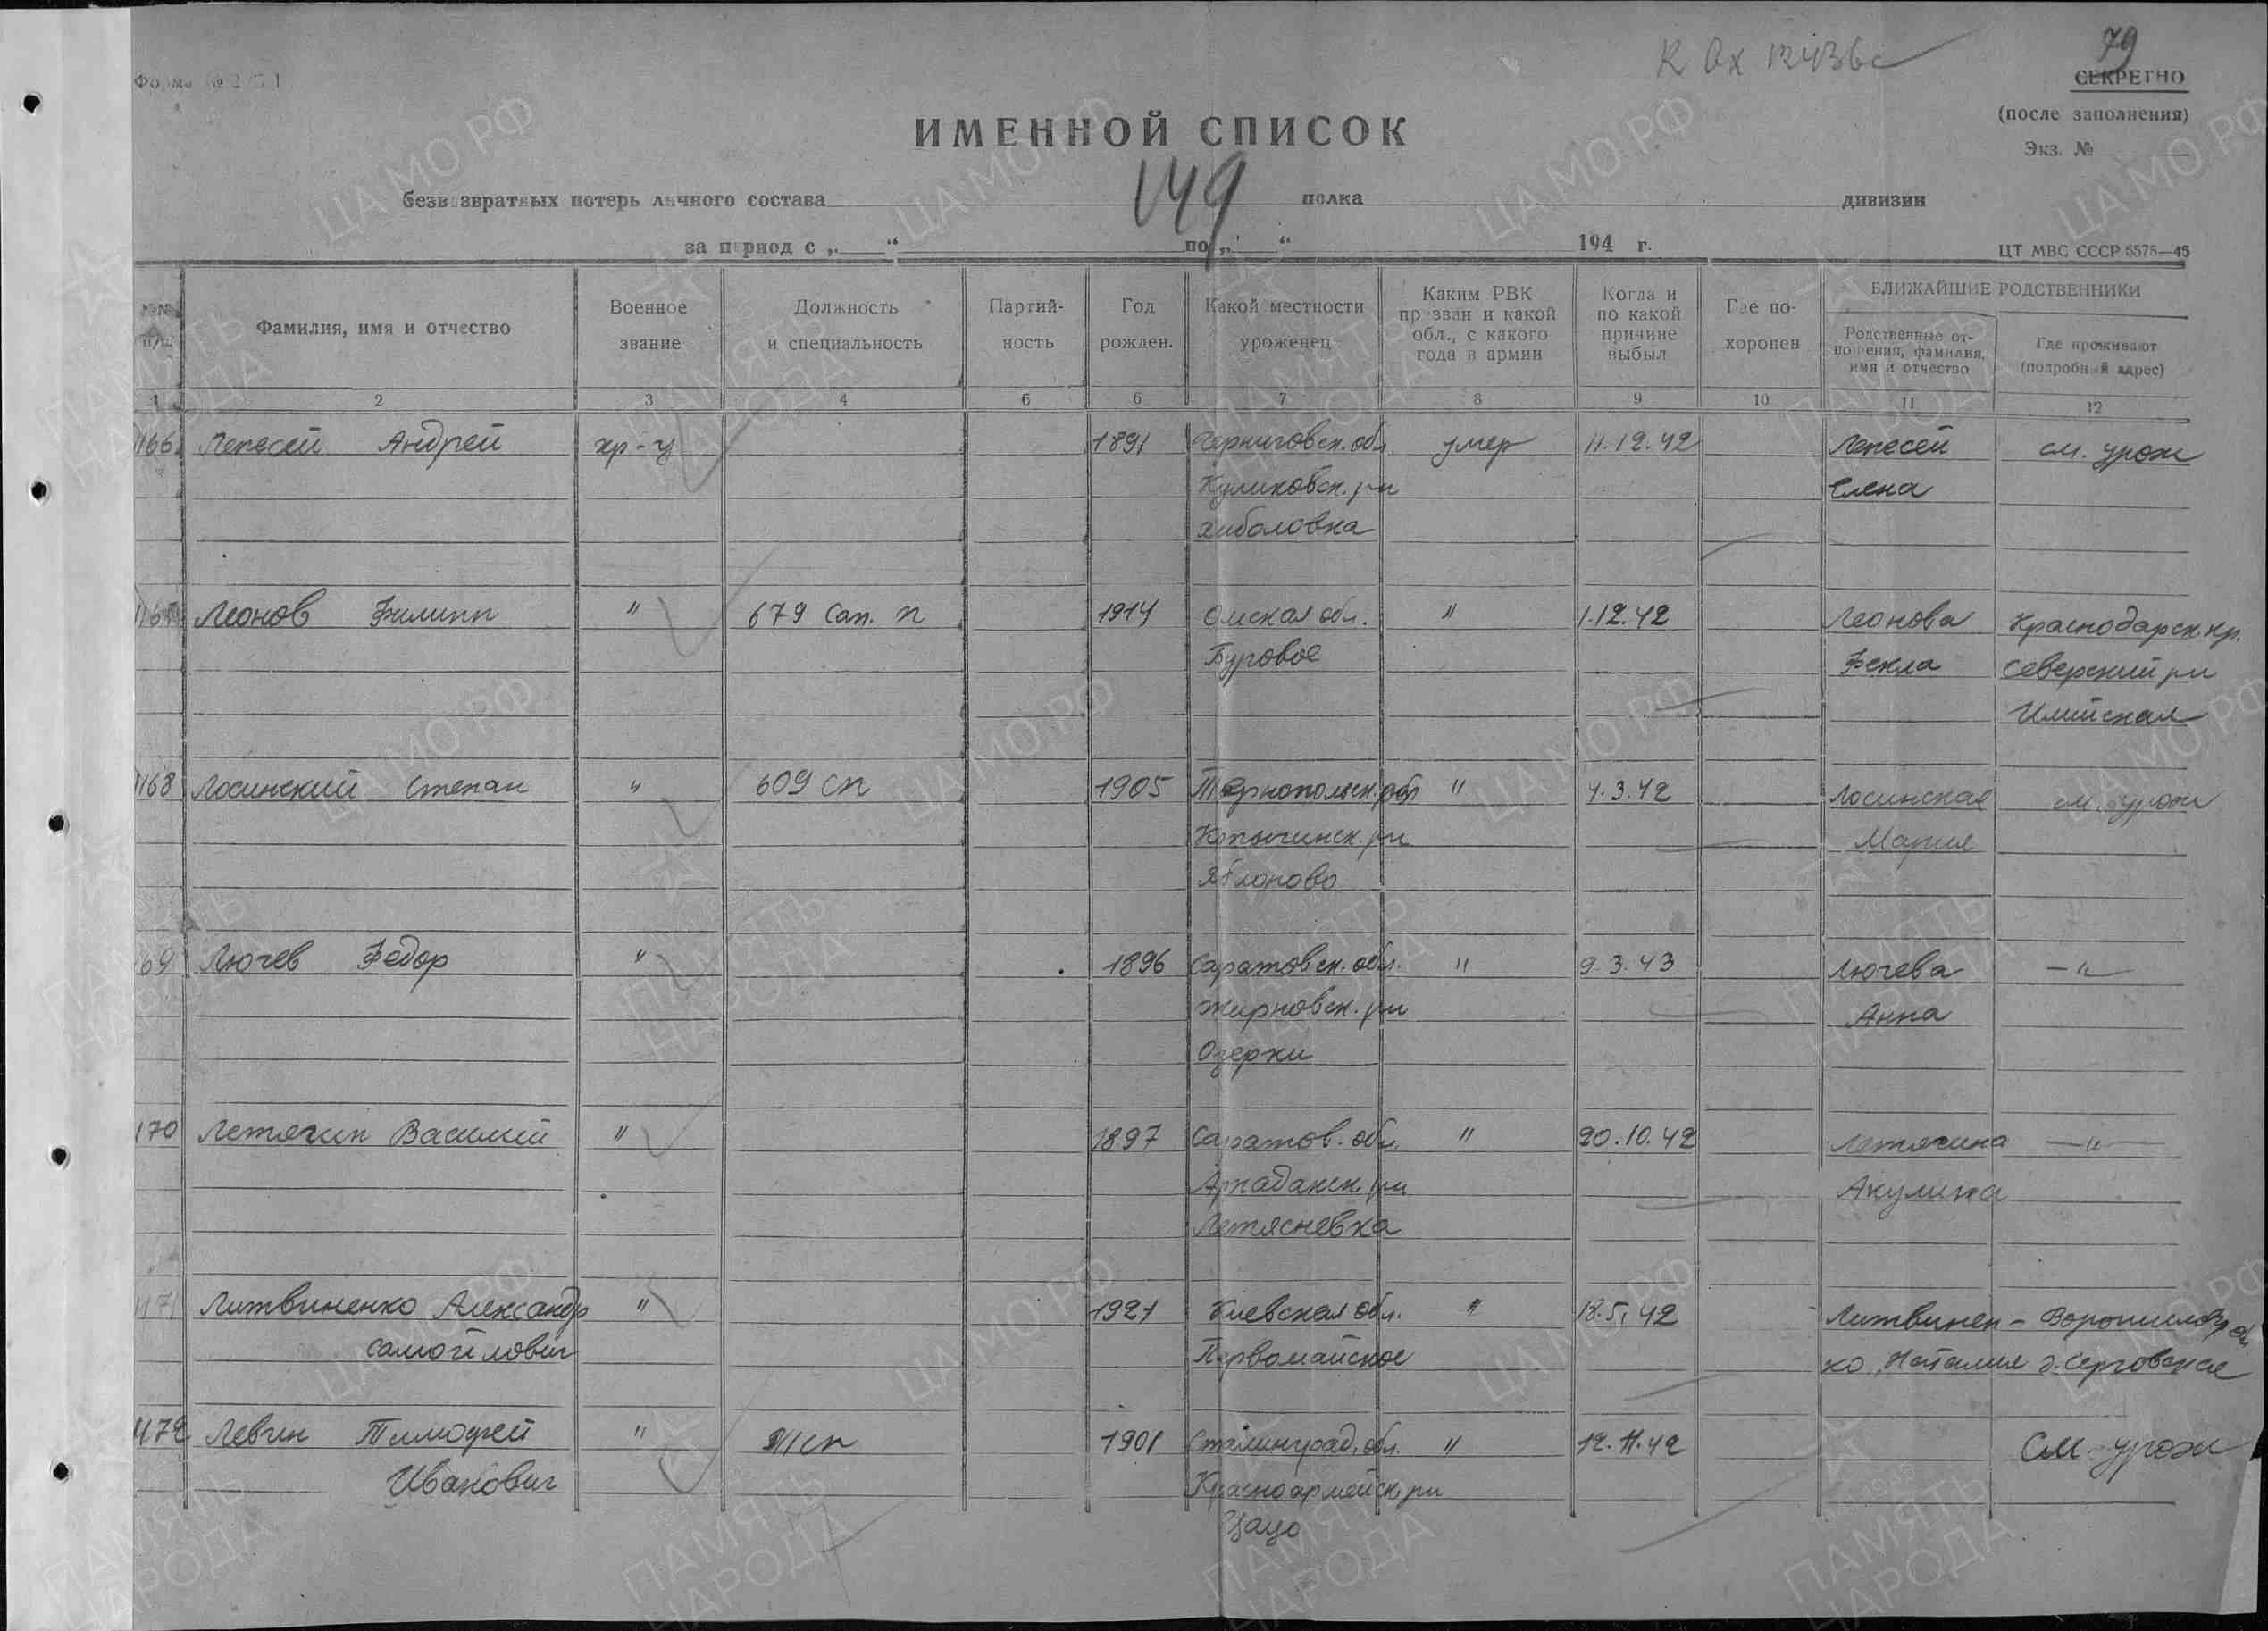 К Вх 12436с
79
Форма № 2/БП
СЕКРЕТНО
(после заполнения)
Экз. №
ИМЕННОЙ СПИСОК
149
безвозвратных потерь личного состава полка дивизии
за период с „ “ по „ “ 194 г.
ЦТ МВС СССР 5575—45
№№ п/п
Фамилия, имя и отчество
Военное звание
Должность и специальность
Партий- ность
Год рожден.
Какой местности уроженец
Каким РВК призван и какой обл., с какого года в армии
Когда и по какой причине выбыл
Где по- хоронен
БЛИЖАЙШИЕ РОДСТВЕННИКИ
Родственные от- ношения, фамилия, имя и отчество
Где проживают (подробный адрес)
1 2 3 4 6 6 7 8 9 10 11 12
1166 Лепесей Андрей кр-ц 1891 Черниговск. обл. умер 11.12.42 Лепесей см. урож
Куликовск. р-н Елена
Хиболовка
1167 Леонов Филипп " 679 Сап. п 1914 Омская обл. " 1.12.42 Леонова Краснодарск. кр.
Буровое Фекла Северский р-н
Илийская
1168 Лосинский Степан " 609 сп 1905 Тернопольск. обл " 4.3.42 Лосинская см. урож
Копычинск. р-н Мария
Яблоново
69 Лючев Федор " 1896 Саратовск. обл. " 9.3.43 Лючева —"—
Жирновск. р-н Анна
Озерки
170 Летягин Василий " 1897 Саратов. обл. " 20.10.42 Летягина —"—
Аркаданск. р-н Акулина
Летясневка
1171 Литвиненко Александр " 1921 Киевская обл. " 18.5.42 Литвинен- Ворошиловгр об
Самойлович Первомайское ко, Наталия г. Серговская
1172 Левин Тимофей " сп 1901 Сталинград. обл. " 12.11.42 См. урож
Иванович Красноармейск. р-н
Цацо